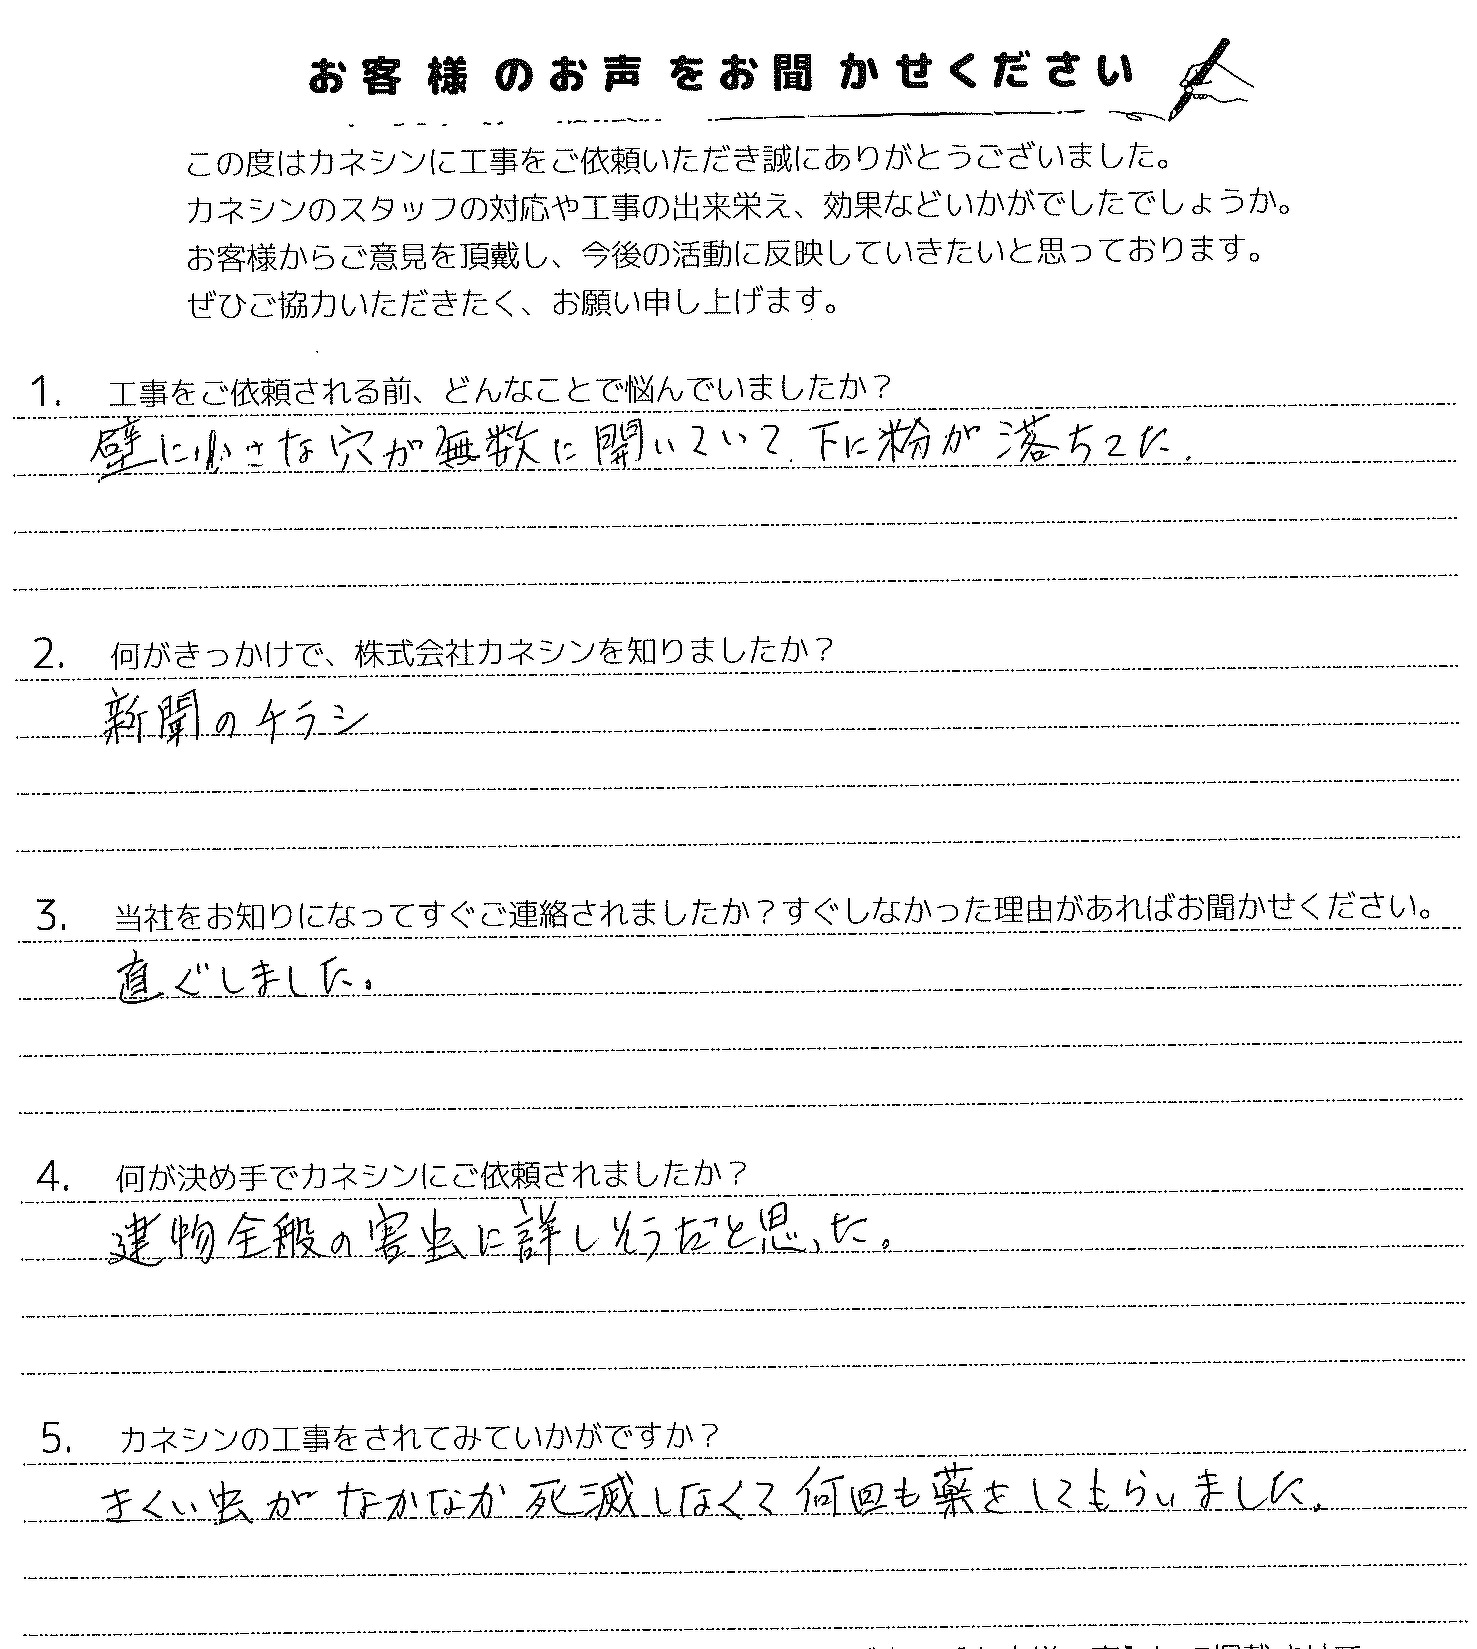 お客様のお声をお聞かせください
この度はカネシンに工事をご依頼いただき誠にありがとうございました。
カネシンのスタッフの対応や工事の出来栄え、効果などいかがでしたでしょうか。
お客様からご意見を頂戴し、今後の活動に反映していきたいと思っております。
ぜひご協力いただきたく、お願い申し上げます。
1. 工事をご依頼される前、どんなことで悩んでいましたか？
壁に小さな穴が無数に開いていて、下に粉が落ちてた。
2. 何がきっかけで、株式会社カネシンを知りましたか？
新聞のチラシ
3. 当社をお知りになってすぐご連絡されましたか？すぐしなかった理由があればお聞かせください。
直ぐしました。
4. 何が決め手でカネシンにご依頼されましたか？
建物全般の害虫に詳しそうだと思った。
5. カネシンの工事をされてみていかがですか？
きくい虫がなかなか死滅しなくて何回も薬をしてもらいました。